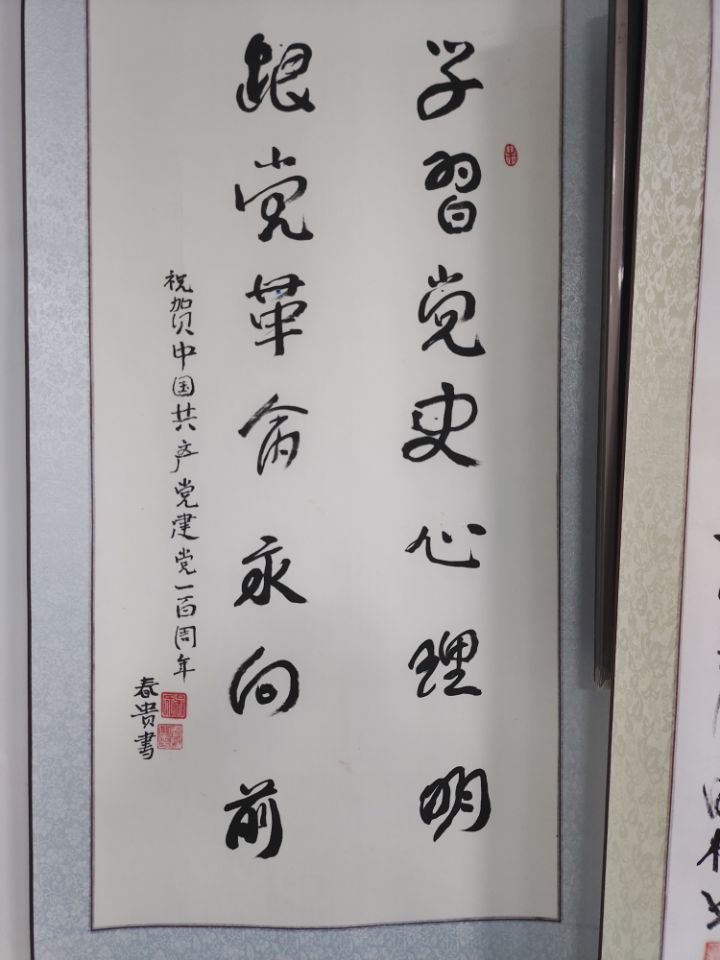 学習党史心理明
跟党革命永向前
祝贺中国共产党建党一百周年
春贵書